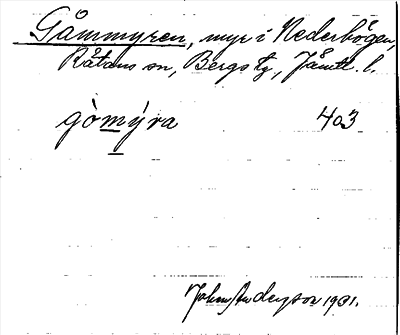 Gåmmyren, myr i Nederhögen,
Råtans sn, Bergs tg, Jämtl. l.
gòmýra 403
John Anderson 1931.